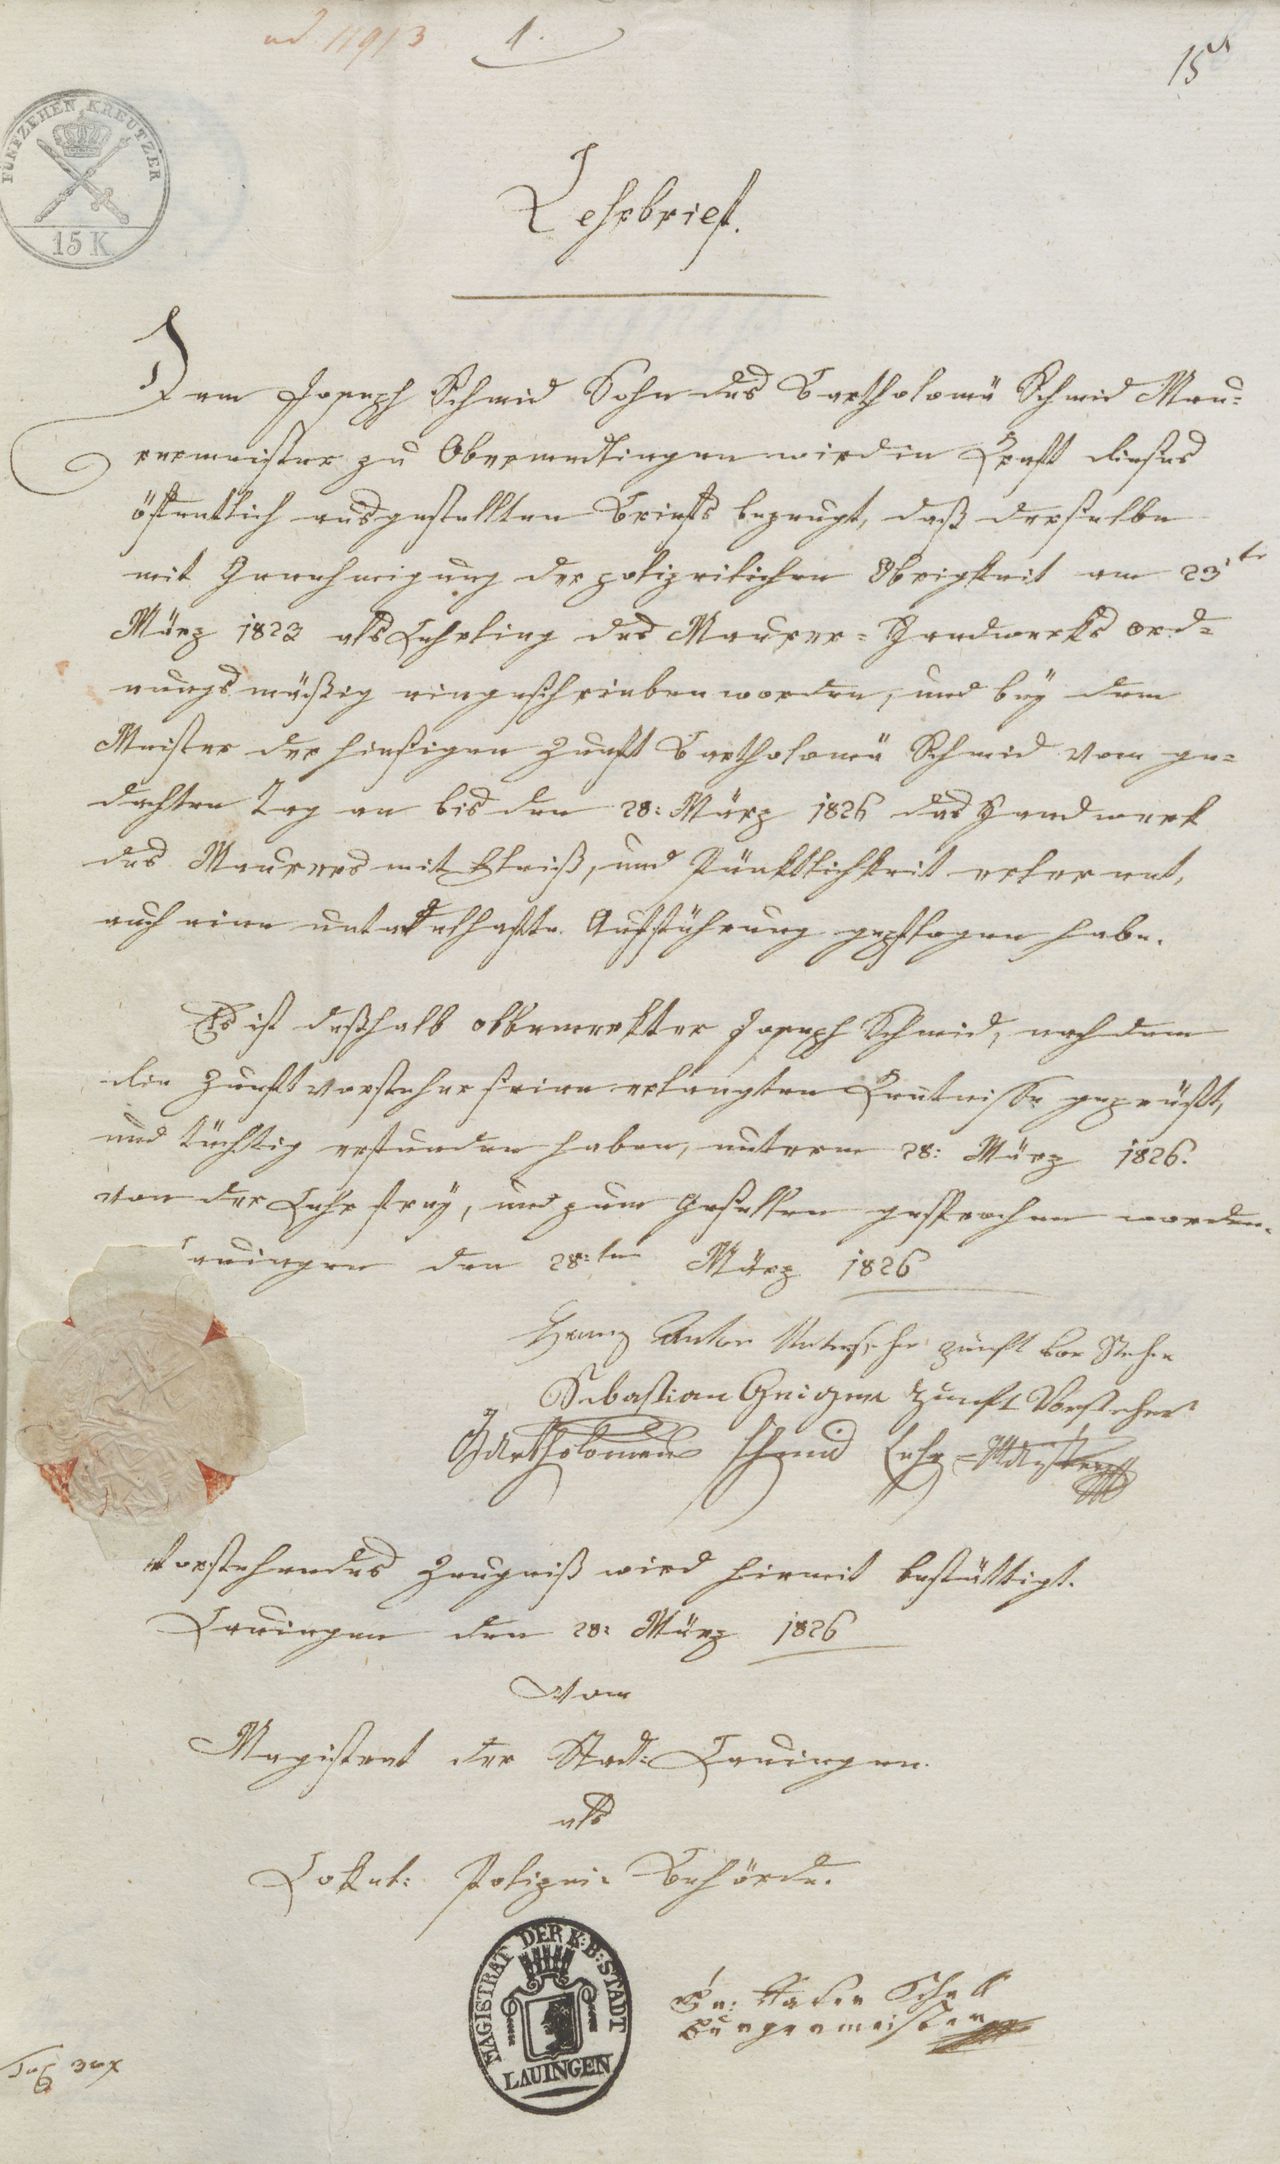 ad 11913
1.
15
FÜNFZEHEN KREUTZER
15 K
Lehrbrief.
Dem Joseph Schmid Sohn des Bartholomä Schmid Mau-
rermeister zu Obermedlingen wird in Kraft dieses
öffentlich ausgestellten Briefs bezeugt, daß derselbe
mit Genehmigung der polizeilichen Obrigkeit am 23te
März 1823 als Lehrling des Maurer-Handwerks ord-
nungsmäßig eingeschrieben worden, und bey dem
Meister der hiesigen Zunft Bartholomä Schmid vom ge-
dachten Tag an bis den 28: März 1826 das Handwerk
des Maurers mit Fleiß, und Pünktlichkeit erlernt,
auch eine untadelhafte Aufführung gepflogen habe.
Es ist deßhalb obbemerkter Joseph Schmid, nachdem
die Zunftvorsteher seine erlangten Kentnisse geprüft,
und tüchtig erfunden haben, unterm 28: März 1826.
von der Lehr frey, und zum Gesellen gesprochen worden.
Lauingen den 28:ten März 1826
Franz Anton zunft vor Steher
Sebastian Zunft Vorsteher
Bartholomeus Schmid Lehr-Meister
Vorstehendes Zeugniß wird hiemit bestättigt.
Lauingen den 28: März 1826
Vom
Magistrat der Stadt Lauingen.
als
Lokal: Polizei: Behörde.
MAGISTRAT DER K:B:STADT
LAUINGEN
Schall
Burgermeister
Tax